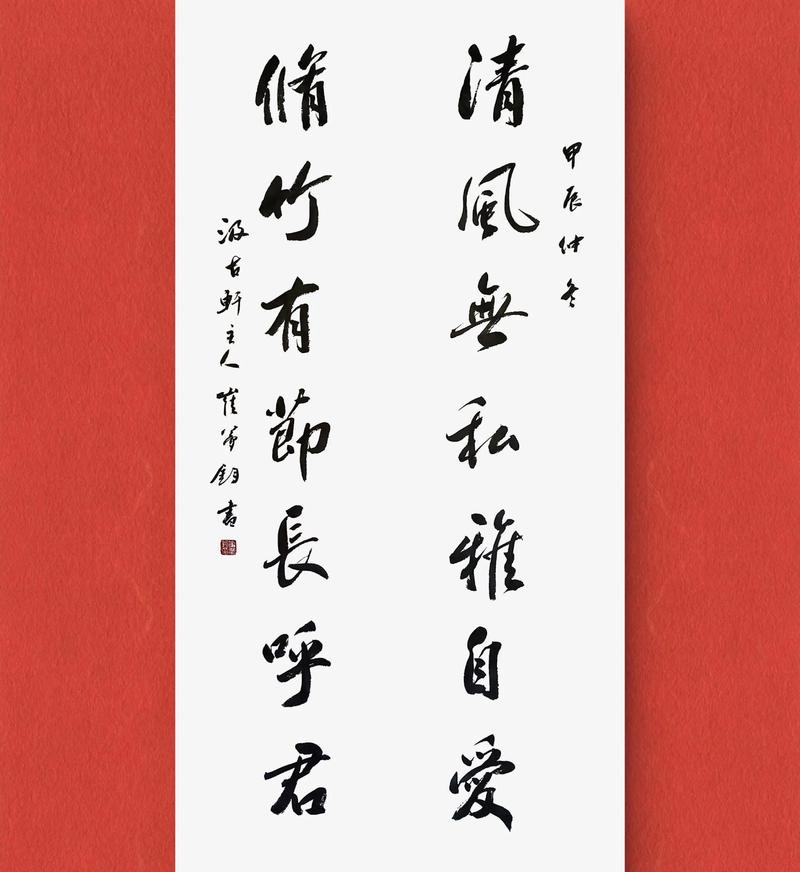 甲辰仲冬
清風無私雅自愛
脩竹有節長呼君
汲古軒主人崔
書